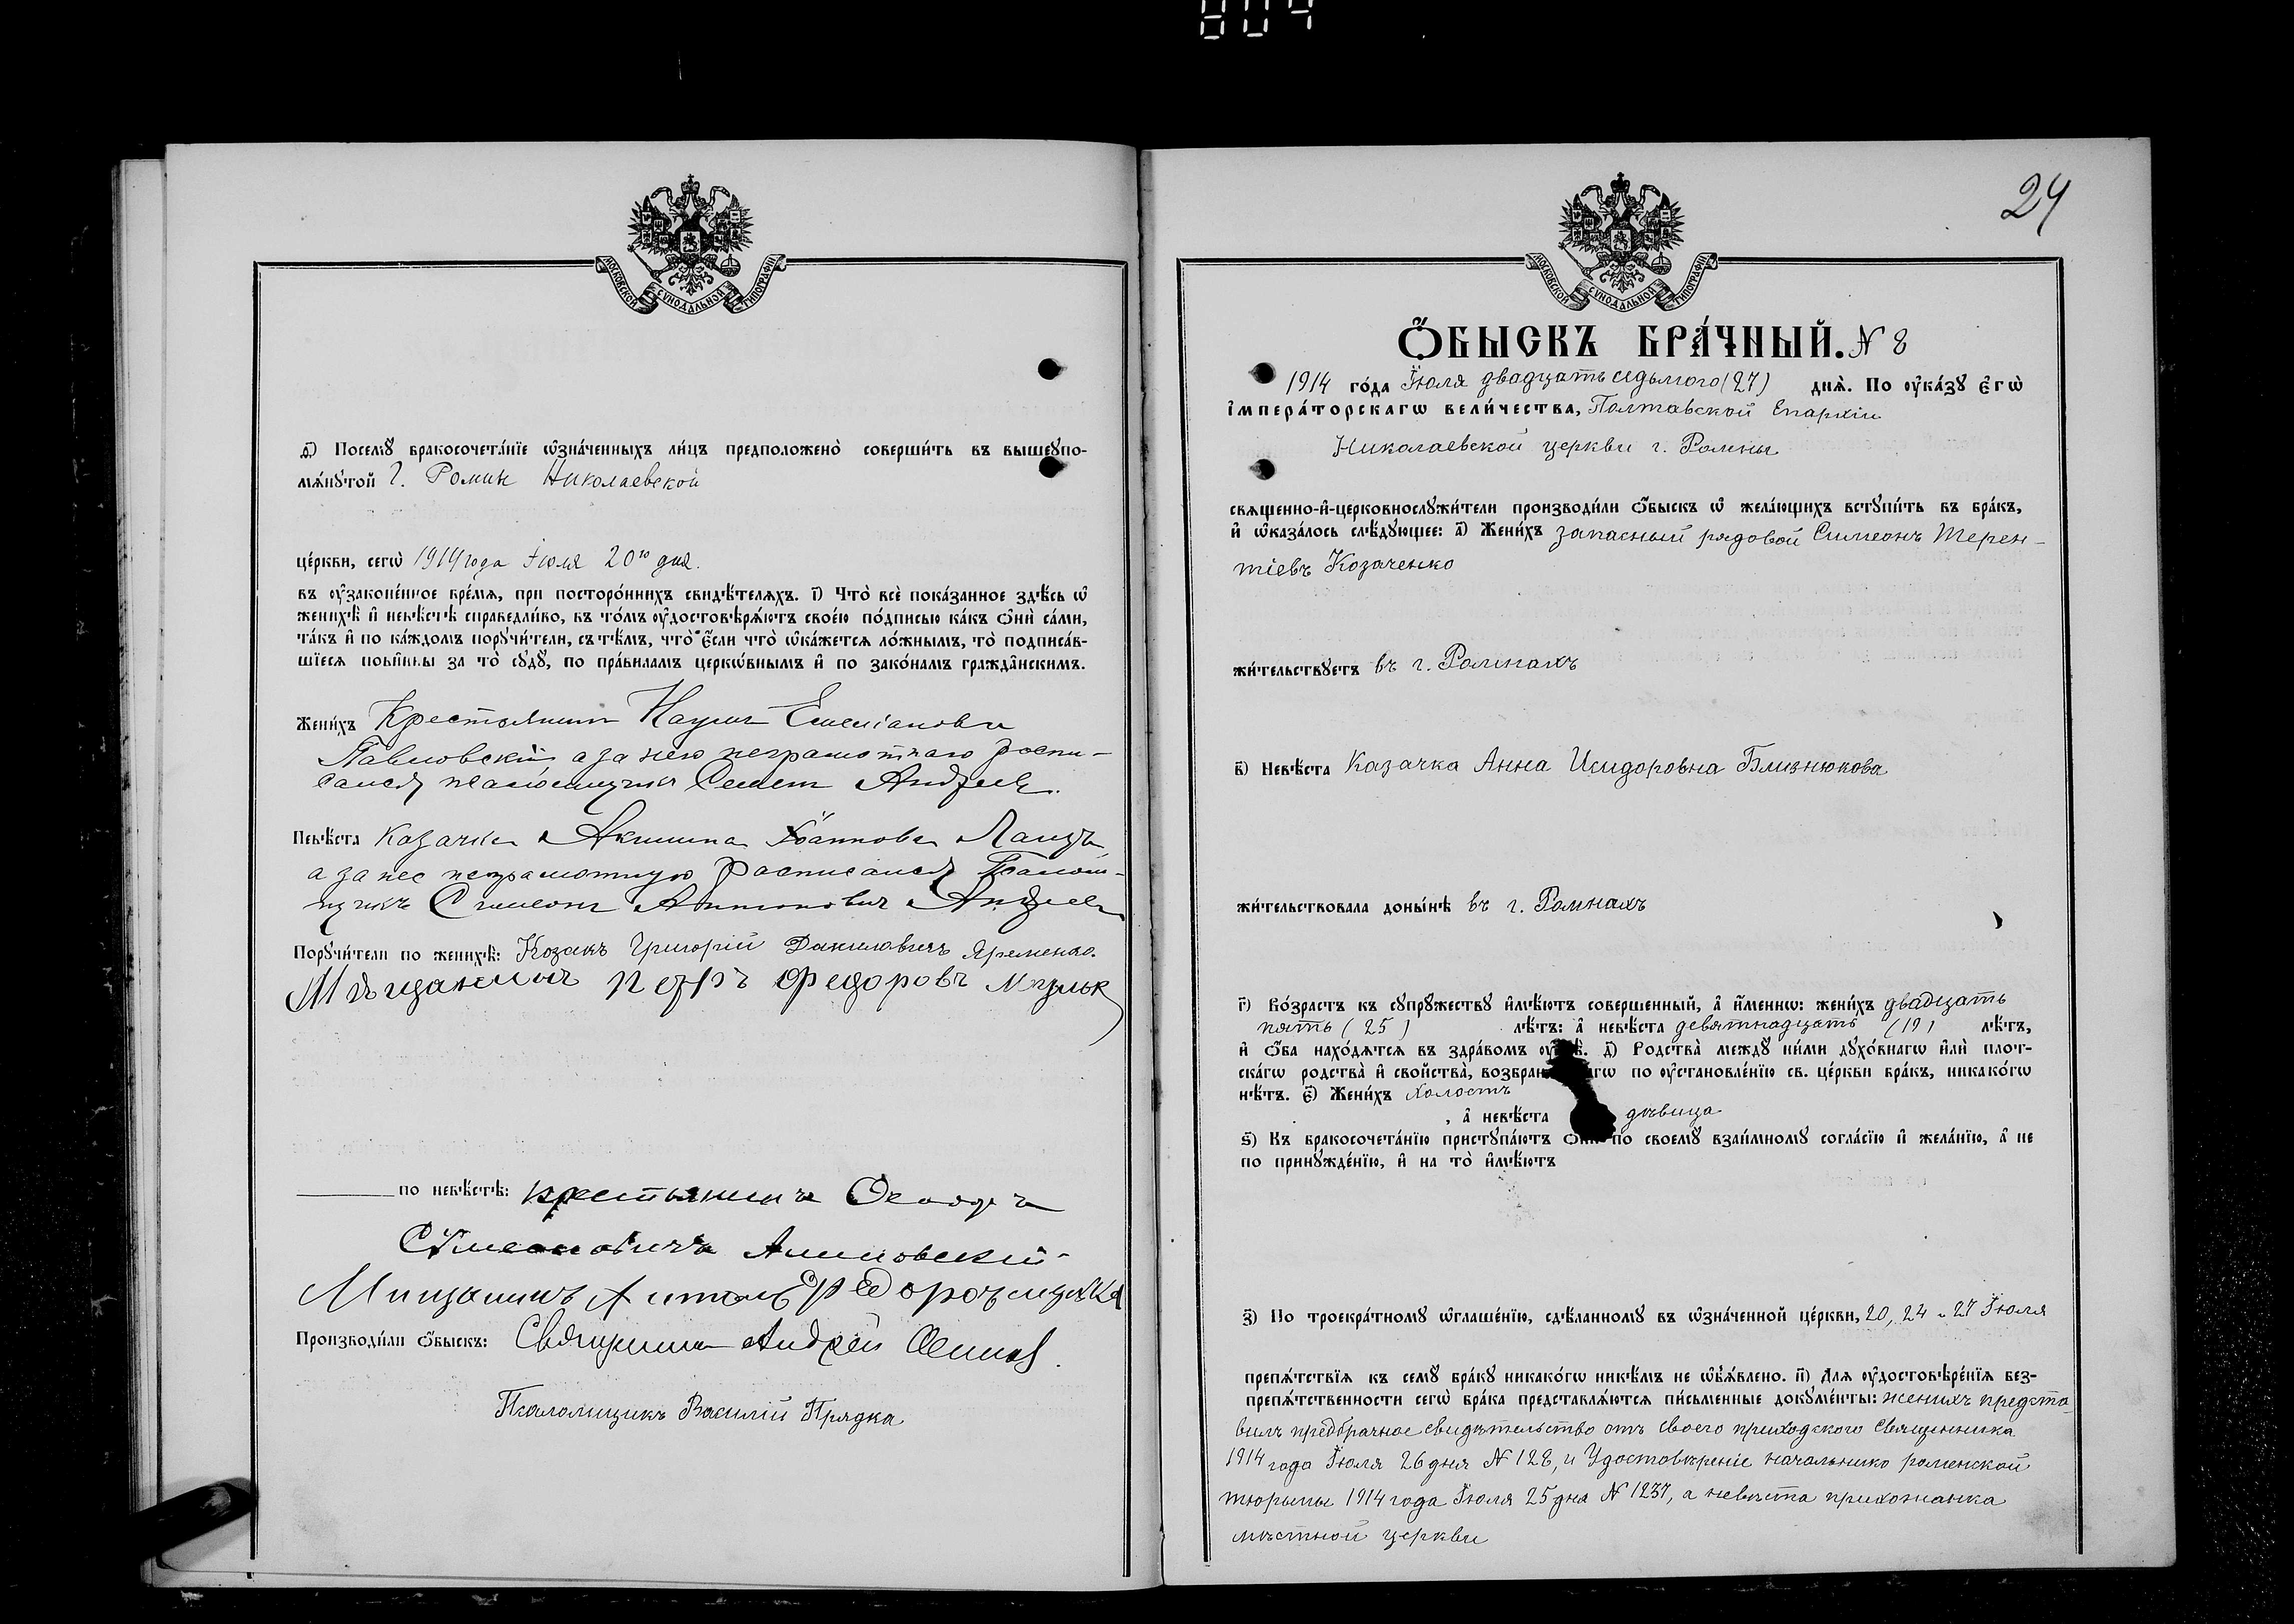 МОСКОВСКОЙ СѴНОДАЛЬНОЙ ТИПОГРАФІИ
ѳ҃) Посемꙋ̀ бракосочета́нїе ѡ҆зна́ченныхъ ли́цъ предположено̀ соверши́ть въ вышеꙋпо-
мѧ́нꙋтой г. Роменъ Николаевской
це́ркви, сегѡ̀ 1914 года Іюля 20го дня.
въ ᲂу҆законе́нное вре́мѧ, при посторо́ннихъ свидѣ́телѧхъ. і҃) Что̀ всѐ пока́занное здѣ́сь ѡ҆
женихѣ̀ и҆ невѣ́стѣ справедли́во, въ то́мъ ᲂу҆достовѣрѧ́ютъ свое́ю по́дписью ка́къ ѻ҆нѝ са́ми,
та́къ и҆ по ка́ждомъ порꙋчи́тели, съ тѣ́мъ, что̀ е҆́сли что̀ ѡ҆ка́жетсѧ ло́жнымъ, то̀ подписа́в-
шїесѧ пови́нны за то̀ сꙋдꙋ̀, по пра́виламъ церко́внымъ и҆ по зако́намъ гражда́нскимъ.
Жени́хъ Крестьянинъ Наумъ Емеліановъ
Павловскій а за него неграмотнаго роспи-
сался псаломщикъ Семенъ Андреев
Невѣ́ста Казачка Акилина Іоаннова
а за нее неграмотную расписался Псалом-
щикъ Симеонъ Антоновичъ Андреев
Порꙋчи́тели по женихѣ̀: Козакъ Григорій Даниловичъ Яременко.
Мѣщанинъ Петръ Федоровъ
по невѣ́стѣ: крестьянинъ
Симеоновичъ
Мищанинъ Антон
Производи́ли ѻ҆́быскъ: Священникъ Андрей
Псаломщикъ Василій Прядка
24
МОСКОВСКОЙ СѴНОДАЛЬНОЙ ТИПОГРАФІИ
Ѻ҆́БЫСКЪ БРА́ЧНЫЙ. № 8
1914 го́да Іюля двадцать седьмого (27) днѧ̀. По ᲂу҆ка́зꙋ є҆гѡ̀
і҆мпера́торскагѡ вели́чества, Полтавской Епархіи
Николаевской церкви г. Ромны
свѧщенно-и҆-церковнослꙋжи́тели производи́ли ѻ҆́быскъ ѡ҆ жела́ющихъ встꙋпи́ть въ бра́къ,
и҆ ѡ҆каза́лось слѣ́дꙋющее: а҃) Жени́хъ запасный рядовой Симеонъ Терен-
тіевъ Козаченко
жи́тельствꙋетъ въ г. Ромнахъ
в҃) Невѣ́ста Казачка Анна Исидоровна Близнюкова
жи́тельствовала доны́нѣ въ г. Ромнахъ
г҃) Во́зрастъ къ сꙋпрꙋ́жествꙋ и҆мѣ́ютъ соверше́нный, а҆ и҆́меннѡ: жени́хъ двадцать
пять (25) лѣ́тъ: а҆ невѣ́ста девятнадцать (19) лѣ́тъ,
и҆ ѻ҆́ба нахо́дѧтсѧ въ здра́вомъ д҃) Родства̀ междꙋ̀ ни́ми дꙋхо́внагѡ и҆лѝ плот-
ска́гѡ родства̀ и҆ свойства̀, возбран агѡ по ᲂу҆становле́нїю св. це́ркви бра́къ, никако́гѡ
нѣ́тъ. є҃) Жени́хъ холостъ
, а҆ невѣ́ста дѣвица
ѕ҃) Къ бракосочета́нїю пристꙋпа́ютъ ѻ҆нѝ по своемꙋ̀ взаи́мномꙋ согла́сїю и҆ жела́нїю, а҆ не
по принꙋжде́нїю, и҆ на то̀ и҆мѣ́ютъ
з҃) По троекра́тномꙋ ѡ҆глаше́нїю, сдѣ́ланномꙋ въ ѡ҆зна́ченной це́ркви, 20, 24 и 27 Іюля
препѧ́тствїѧ къ семꙋ̀ бра́кꙋ никако́гѡ никѣ́мъ не ѡ҆б̾ѧ́влено. и҃) Длѧ ᲂу҆достовѣре́нїѧ без-
препѧ́тственности сегѡ̀ бра́ка представлѧ́ютсѧ пи́сьменные докꙋме́нты: женихъ предста
вилъ предбрачное свидѣтельство отъ своего приходского Священника
1914 года Іюля 26 дня № 128, и Удостовѣреніе начальника роменской
тюрьмы 1914 года Іюля 25 дня № 1237, а невѣста прихожанка
мѣстной церкви